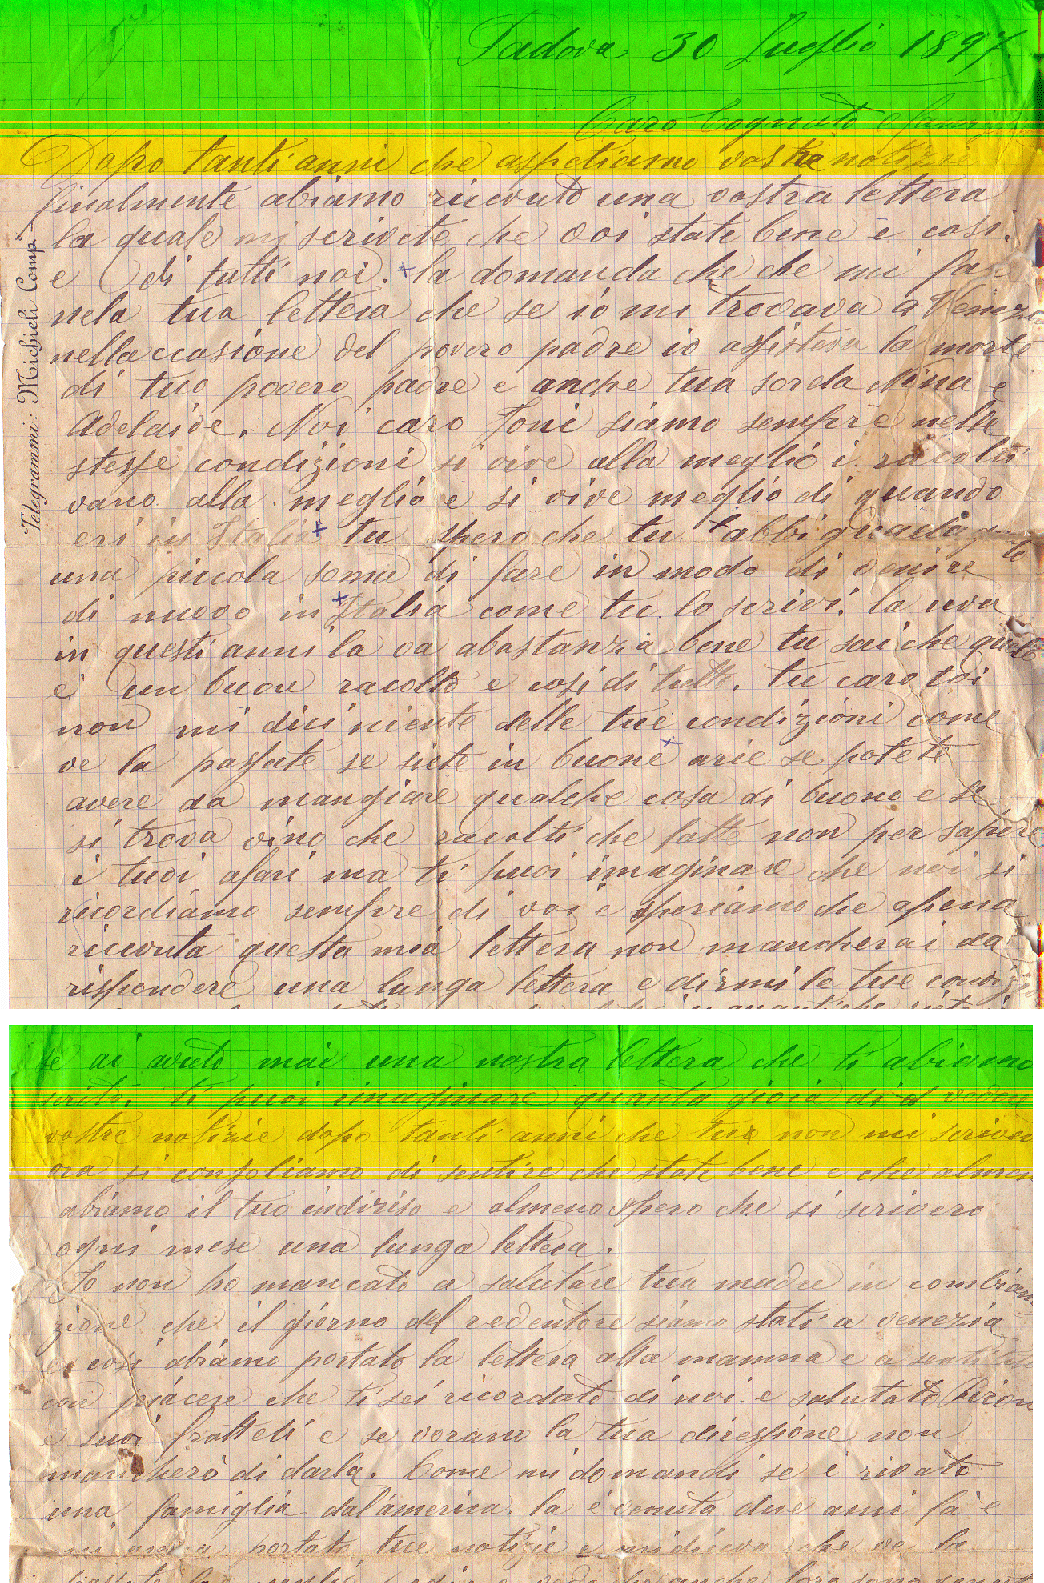 Padova 30 Luglio 1897
Caro Cognato e
Dopo tanti anni che aspetiamo vostre notizie
finalmente abiamo ricevuto una vostra lettera
la quale mi scrivete che voi state bene e cosi
e di tutti noi. la domanda che che mi fai
nela tua lettera che se io mi trovava a Venezia
nellaccasione del povero padre io assisteva la morte
di tuo povero padre e anche tua sorela Nina e
Adelaide. Noi caro Toni siamo sempre nelle
stesse condizioni si vive alla meglio i racolti
vano alla meglio e si vive meglio di quando
eri in Italia tu spero che tu abbi guadagnato
una piccola soma di fare in modo di venire
di nuovo in Italia come tu lo scrivi. la uva
in questi anni la va abastanza bene tu sai che questo
e un buon racolto e cosi di tutto. tu caro toi
non mi dici niente delle tue condizioni come
ve la passate se siete in buone arie se potete
avere da mangiare qualche cosa di buono e se
si trova vino che racolti che fatte non per sapere
i tuoi afari ma ti puoi imaginare che noi si
ricordiamo sempre di voi e speriamo che apena
ricevuta questa mia lettera non mancherai da
rispondere una lunga lettera e dirmi le tue
Telegrammi: Michieli Comp
se ai avuto mai una nostra lettera che ti abiamo
scrito. ti puoi imaginare quanta gioia di
vostre notizie dopo tanti anni che tue non mi
ora si consoliamo di sentire che state bene e che almen
abiamo il tuo indiriso e almeno spero che si scrivero
ogni mese una lunga lettera.
Io non ho mancato a salutare tua madre in combina
zione che il giorno del redentore siamo stati a venezia
e cosi abiamo portato la lettera alla mamma e a
con piacere che ti sei ricordato di noi e salutato
e suoi fratteli e se vorano la tua diressione non
mancherò di darla. Come mi domandi se è rivato
una famiglia dal'america. la è venuta due anni fà e
portato tue notizie e mi diceva che ve la